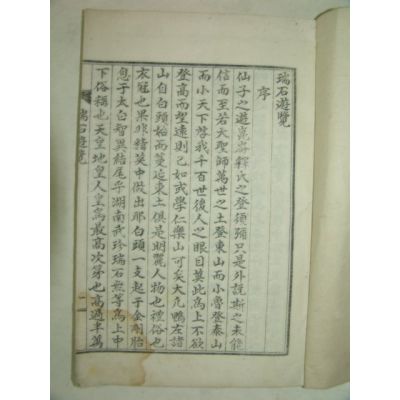 瑞石遊覽
序
仙子之遊崑崙釋氏之登須彌只是外說斯之未能
信而至若大聖師萬世之土登東山而小魯登泰山
而小天下啓我千百世後人之眼目莫此爲上不欲
登高而望遠則已如或學仁樂山可矣大凡鴨左諸
山自白頭始而蔓延東土俱是明麗人物也禮俗也
衣冠也果非精英中做出那白頭一支起于金剛胎
息于太白智異結尾乎湖南武珍瑞石無等爲上中
下俗稱也天皇地皇人皇爲最高次第也高過半萬
瑞石遊覽
一